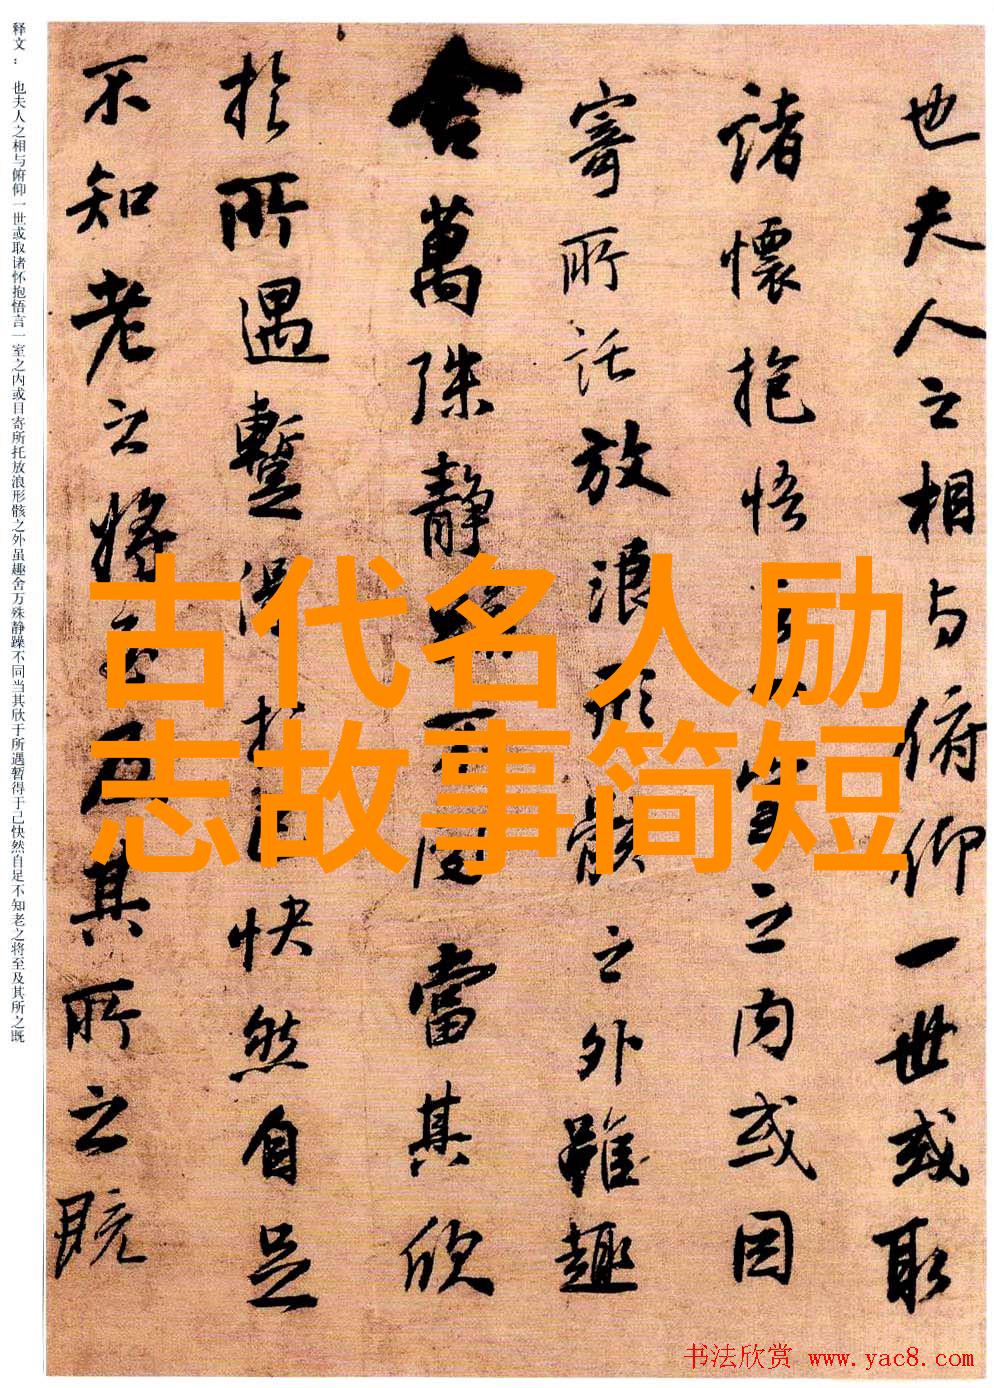 也夫人之相与俯仰一世或取
諸懷抱悟之内或因
寄所託放浪形骸之外雖趣
舍萬殊静不當其欣
於所遇暫得快然自足
不知老之將其所之既
古代名人励
志故事简短
释文：也夫人之相与俯仰一世或取诸怀抱悟言一室之内或目寄所托放浪形骸之外虽趣舍万殊静躁不同当其欣于所遇暂得于己快然自足不知老之将至及其所之既
书法欣赏 www.yac8.com